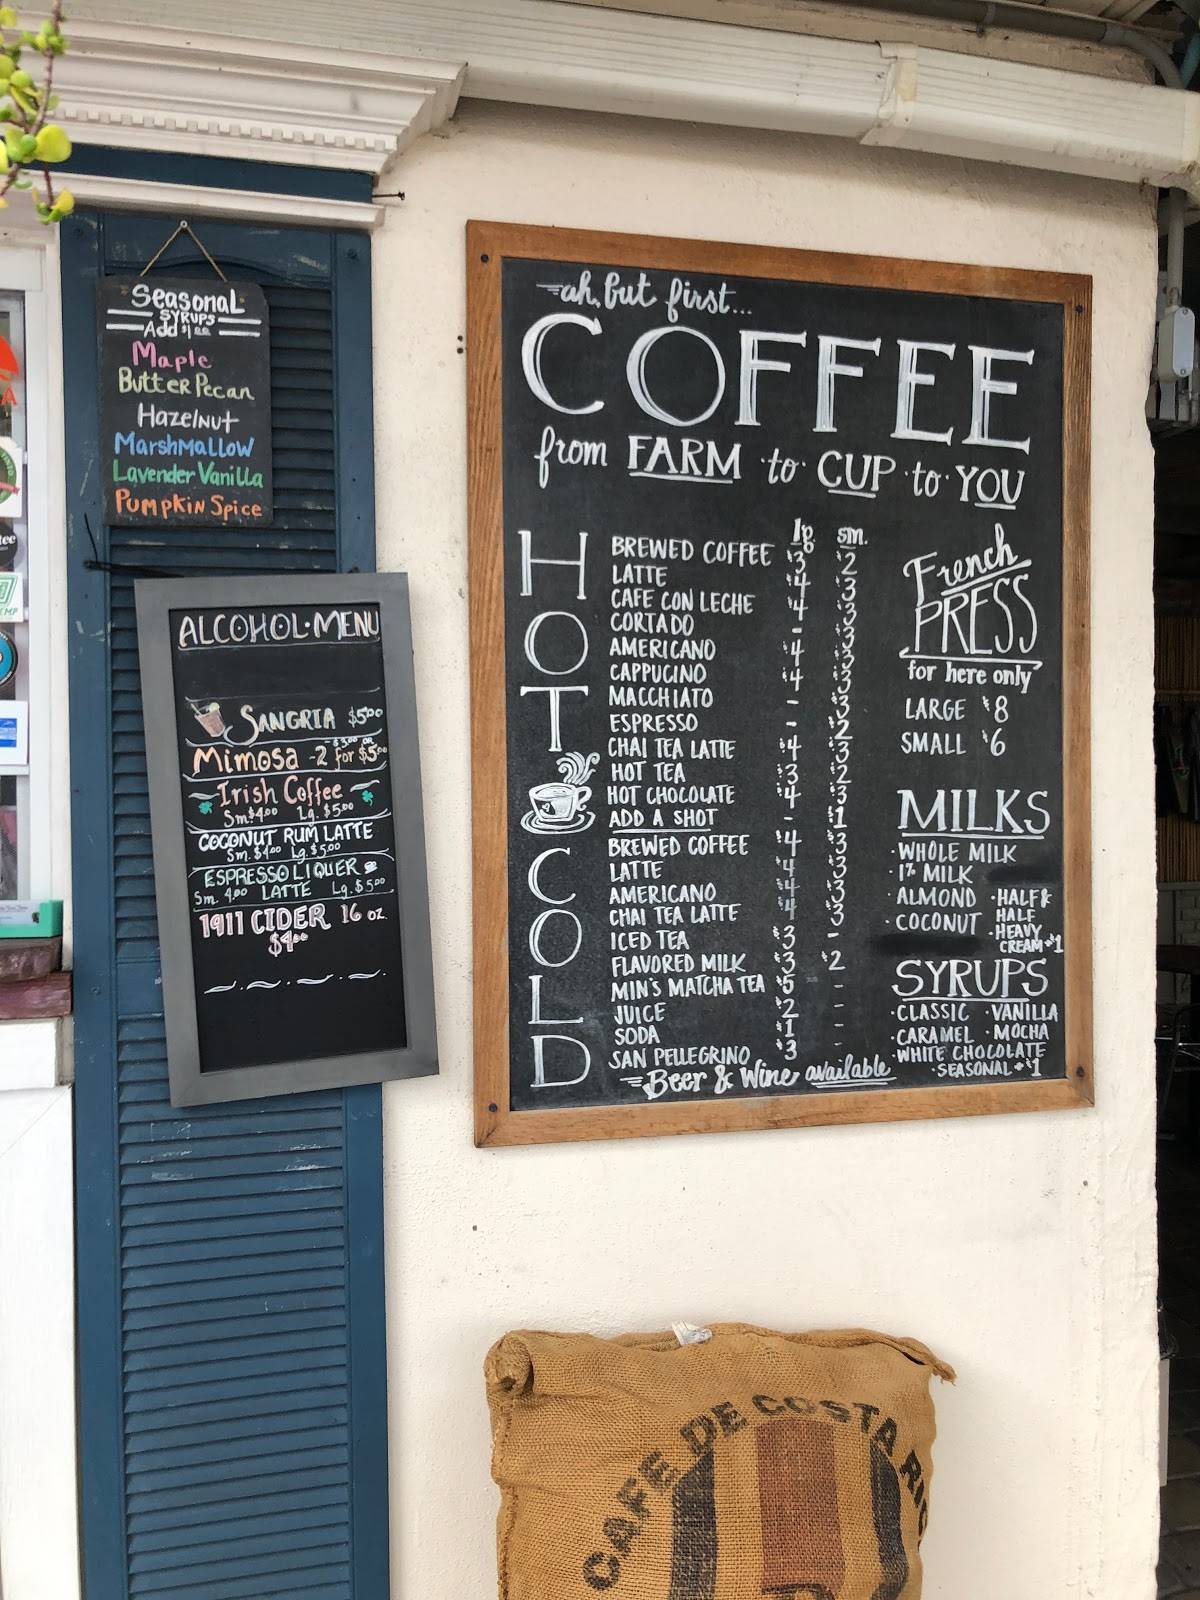 Seasonal
SYRUPS
Add $1.00
Maple
Butter Pecan
Hazelnut
Marshmallow
Lavender Vanilla
Pumpkin Spice
ALCOHOL·MENU
SANGRIA $5.00
Mimosa - $3.00 OR 2 for $5.00
Irish Coffee
Sm. $4.00 Lg. $5.00
COCONUT RUM LATTE
Sm. $4.00 Lg. $5.00
ESPRESSO LIQUER
Sm. 4.00 LATTE Lg. $5.00
1911 CIDER 16 oz.
$4.00
ah, but first...
COFFEE
from FARM ·to· CUP ·to· YOU
lg. sm.
HOT
BREWED COFFEE $3 $2
LATTE $4 $3
CAFE CON LECHE $4 $3
CORTADO - $3
AMERICANO $4 $3
CAPPUCINO $4 $3
MACCHIATO - $3
ESPRESSO - $2
CHAI TEA LATTE $4 $3
HOT TEA $3 $2
HOT CHOCOLATE $4 $3
ADD A SHOT - $1
COLD
BREWED COFFEE $4 $3
LATTE $4 $3
AMERICANO $4 $3
CHAI TEA LATTE $4 $3
ICED TEA $3 -
FLAVORED MILK $3 $2
MIN'S MATCHA TEA $5 -
JUICE $2 -
SODA $1 -
SAN PELLEGRINO $3 -
Beer & Wine available
French
PRESS
for here only
LARGE $8
SMALL $6
MILKS
·WHOLE MILK
·1% MILK
·ALMOND ·HALF &
HALF
·COCONUT ·HEAVY
CREAM +$1
SYRUPS
·CLASSIC ·VANILLA
·CARAMEL ·MOCHA
·WHITE CHOCOLATE
·SEASONAL +$1
CAFE DE COSTA